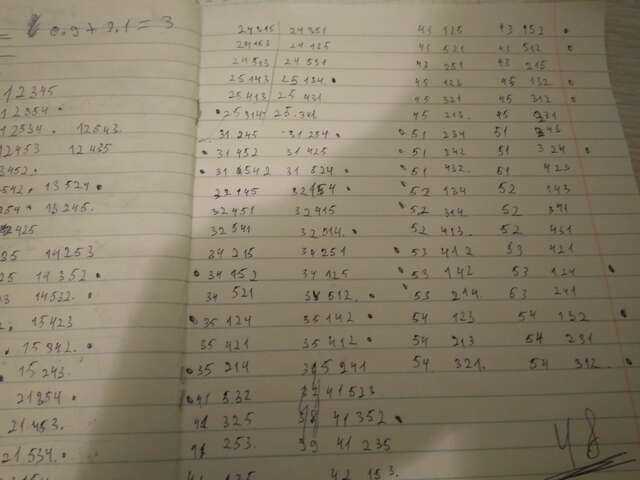 0.9 + 2.1 = 3
12345
12354.
12534. 12543.
12453 12435
13452.
13542. 13524.
13254. 13245.
14253
14352.
14532.
15423
15342.
15243.
21354
21453.
21534.
24315 24351
24153 24135
24513 24531
25143 25134.
25413 25431
25314 25341
31245 31254.
31452 31425
31542 31524.
32145 32154.
32451 32415
32541 32514.
34215 34251
34152 34125
34 521 34 512.
35 124 35 142.
35 421 35 412.
35 214 35 241
41 532 41523
41 325 41 352.
41 253. 41 235
42 153.
43 125 43 152
43 521 43 512
43 251 43 215
45 123 45 132
45 321 45 312
45 213 45 231
51 234 51 243
51 342 51 324
51 432. 51 423
52 134 52 143
52 314 52 341
52 413. 52 431
53 412 53 421
53 142 53 124
53 214. 53 241
54 123 54 132
54 213 54 231
54 321. 54 312.
48